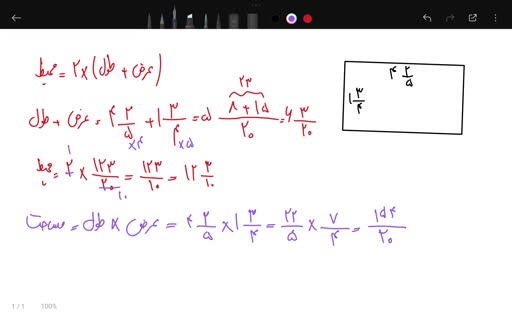 محیط = ۲ × (طول + عرض)
طول + عرض = ۴ ۲/۵ + ۱ ۳/۴ = ۵ (۸ + ۱۵)/۲۰ = ۶ ۳/۲۰
۲۳
×۴ ×۵
محیط = ۲ × ۱۲۳/۲۰ = ۱۲۳/۱۰ = ۱۲ ۳/۱۰
۱ ۱۰
مساحت = طول × عرض = ۴ ۲/۵ × ۱ ۳/۴ = ۲۲/۵ × ۷/۴ = ۱۵۴/۲۰
۴ ۲/۵
۱ ۳/۴
1 / 1 100%